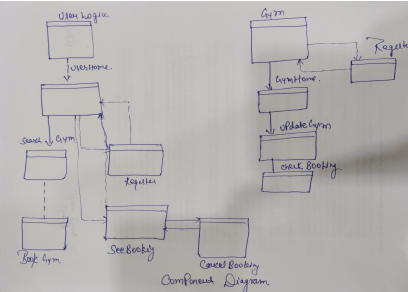 User Logic
UserHome.
Search Gym
Register
Book Gym
See Booking
Cancel Booking
Gym
Register
GymHome.
update Gym
check Booking
Component Diagram